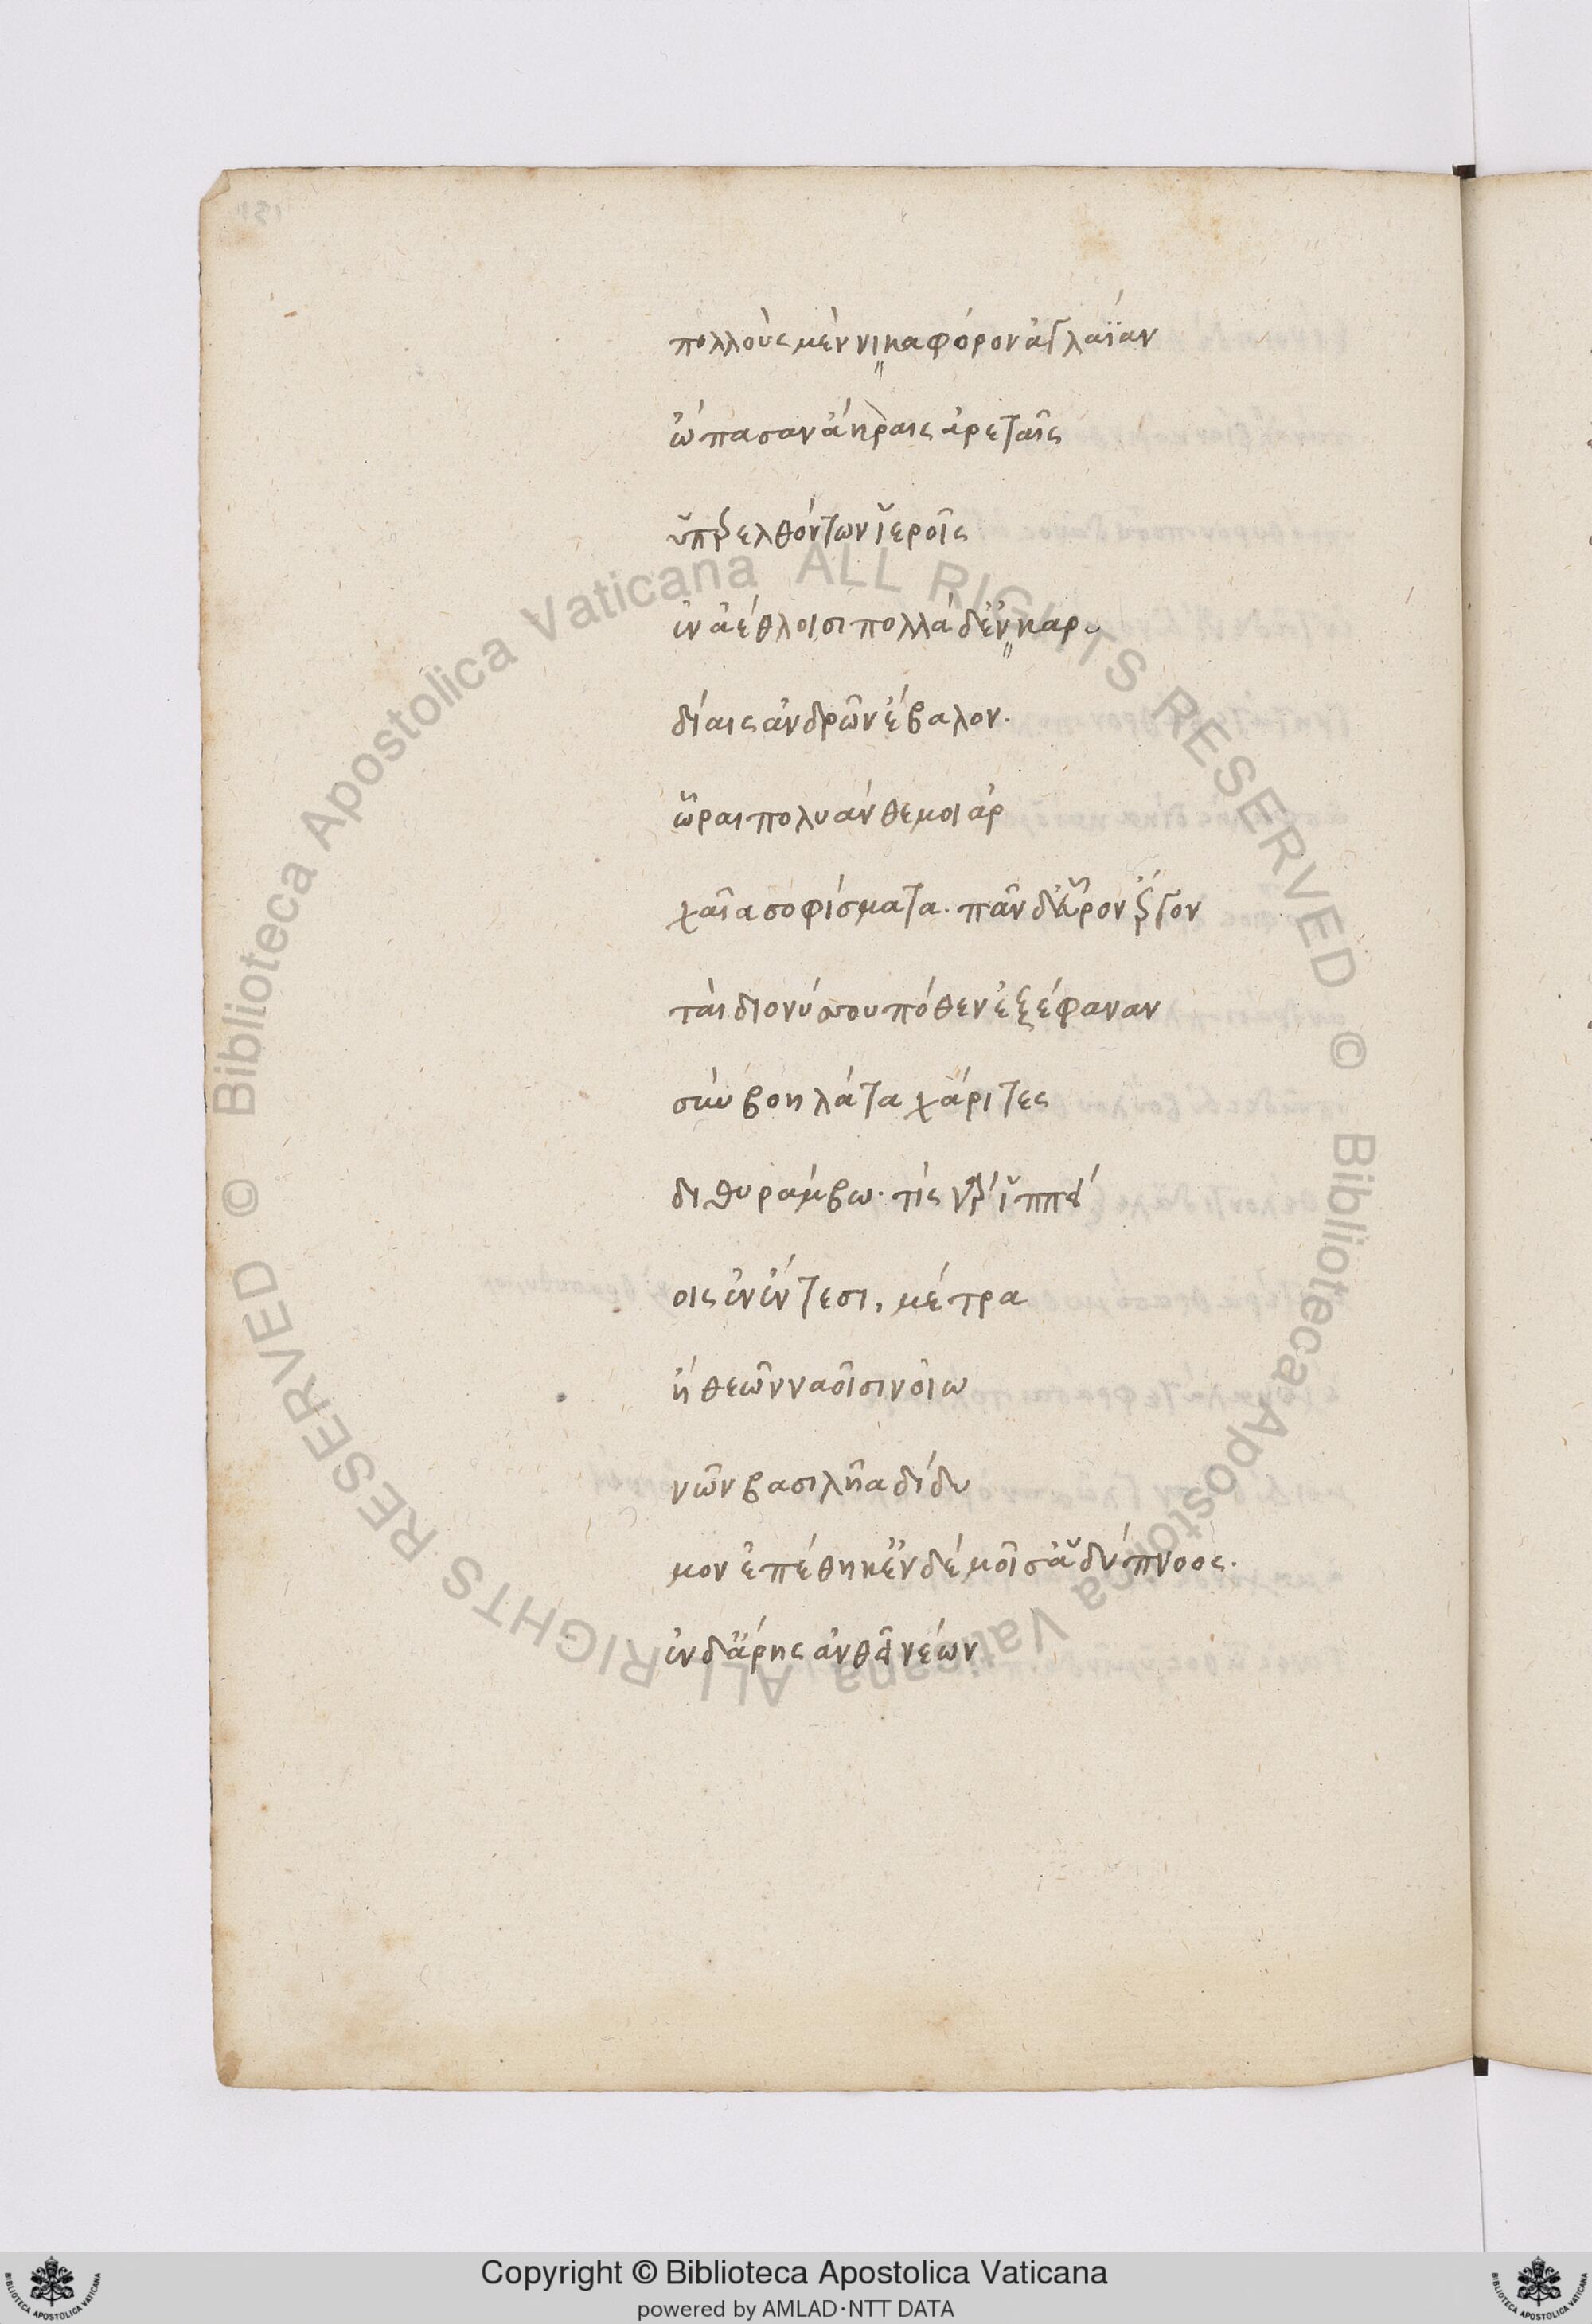 πολλοὺς μὲν νικαφόρον ἀγλαΐαν
ὤπασαν ἄκραις ἀρεταῖς
ὑπερελθόντων ἱεροῖς
ἐν ἀέθλοισι πολλὰ δ' ἐν καρ
δίαις ἀνδρῶν ἔβαλον.
ὧραι πολυάνθεμοι ἀρ
χαῖα σοφίσματα. πᾶν δ' εὑρόν ἔργον
ταὶ διονύσου πόθεν ἐξέφαναν
σὺν βοηλάτα χάριτες
διθυράμβω. τίς γὰρ ἱππεί
οις ἐν ἔντεσι, μέτρα
ἢ θεῶν ναοῖσιν οἰω
νῶν βασιλῆα δίδυ
μον ἐπέθηκ' ἐν δὲ μοῖσ' ἁδύπνοος.
ἐν δ' ἄρης ἀνθεῖ νέων
Copyright © Biblioteca Apostolica Vaticana
powered by AMLAD·NTT DATA